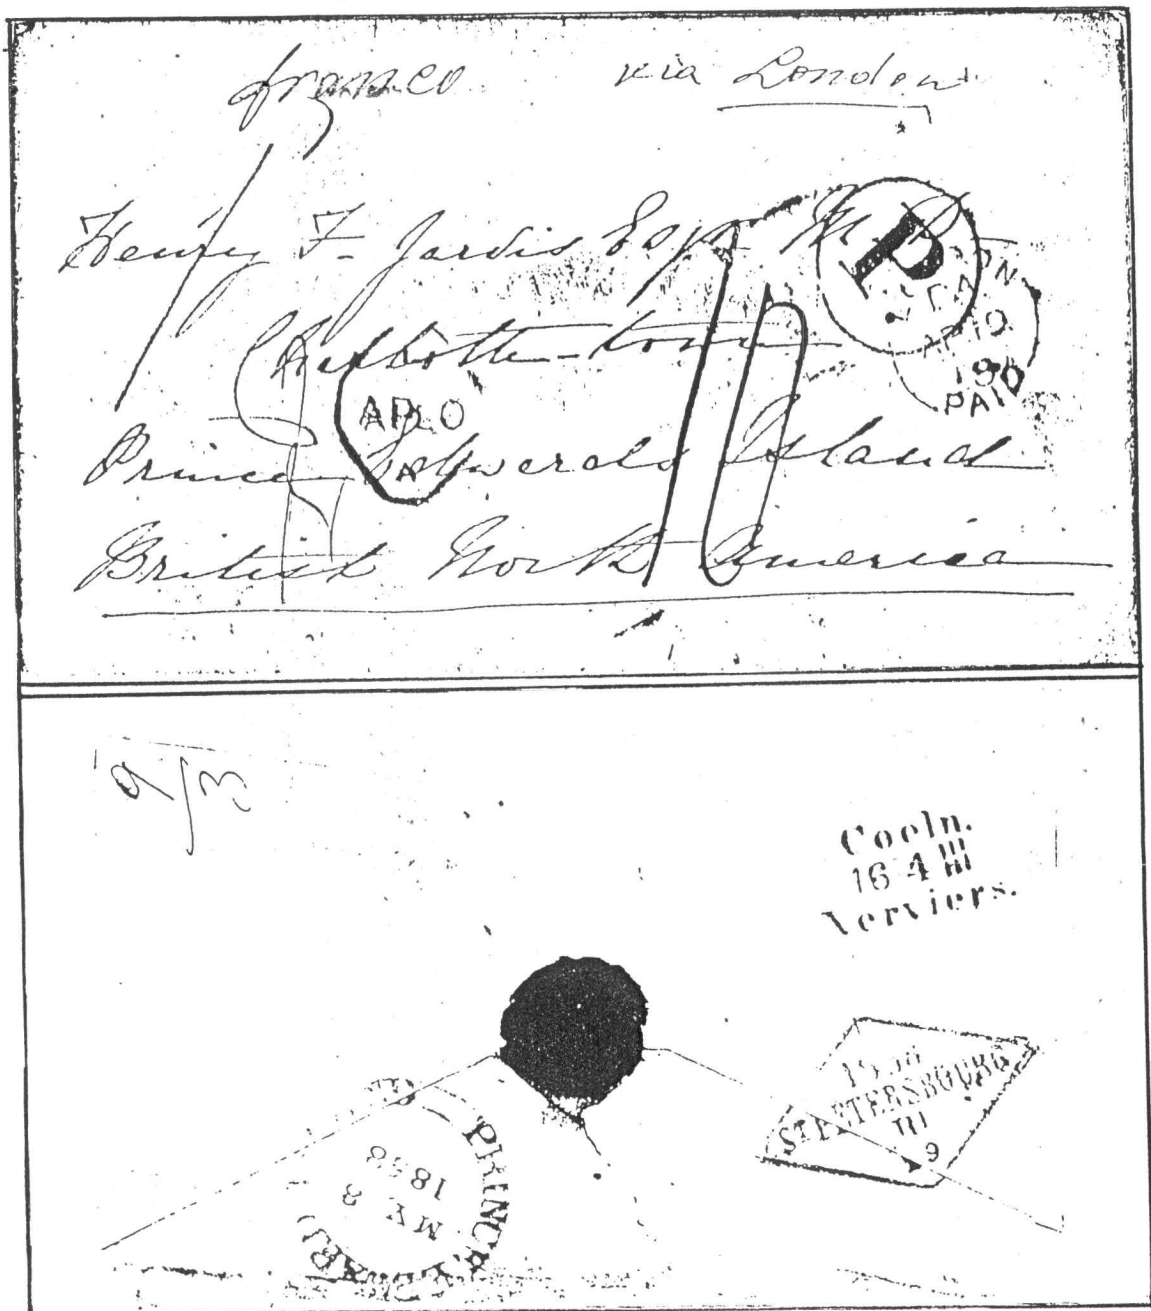 franco via London
Henry F. Jarvis Esqr M.D.
Charlotte-town
Prince Edwards Island
British North America
P
AP 10
PAID
10
9/3
Coeln.
16 4 III
Verviers.
ST PETERSBOURG
III
9
PRINCE EDWARD
MY 3
1858